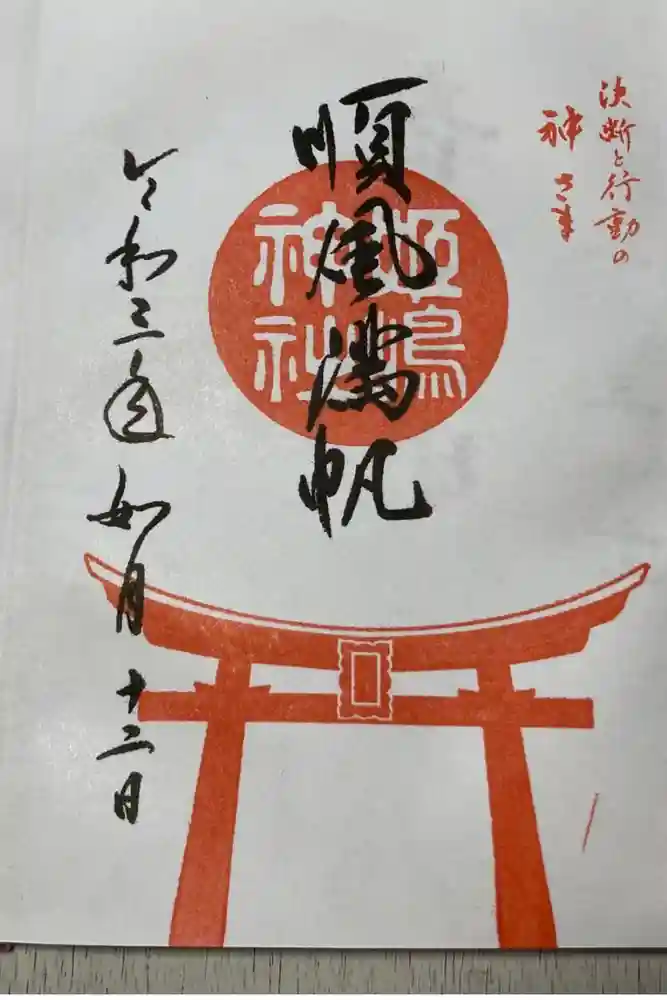 決断と行動の
神さま
順風満帆
姫嶋
神社
令和三年如月十三日